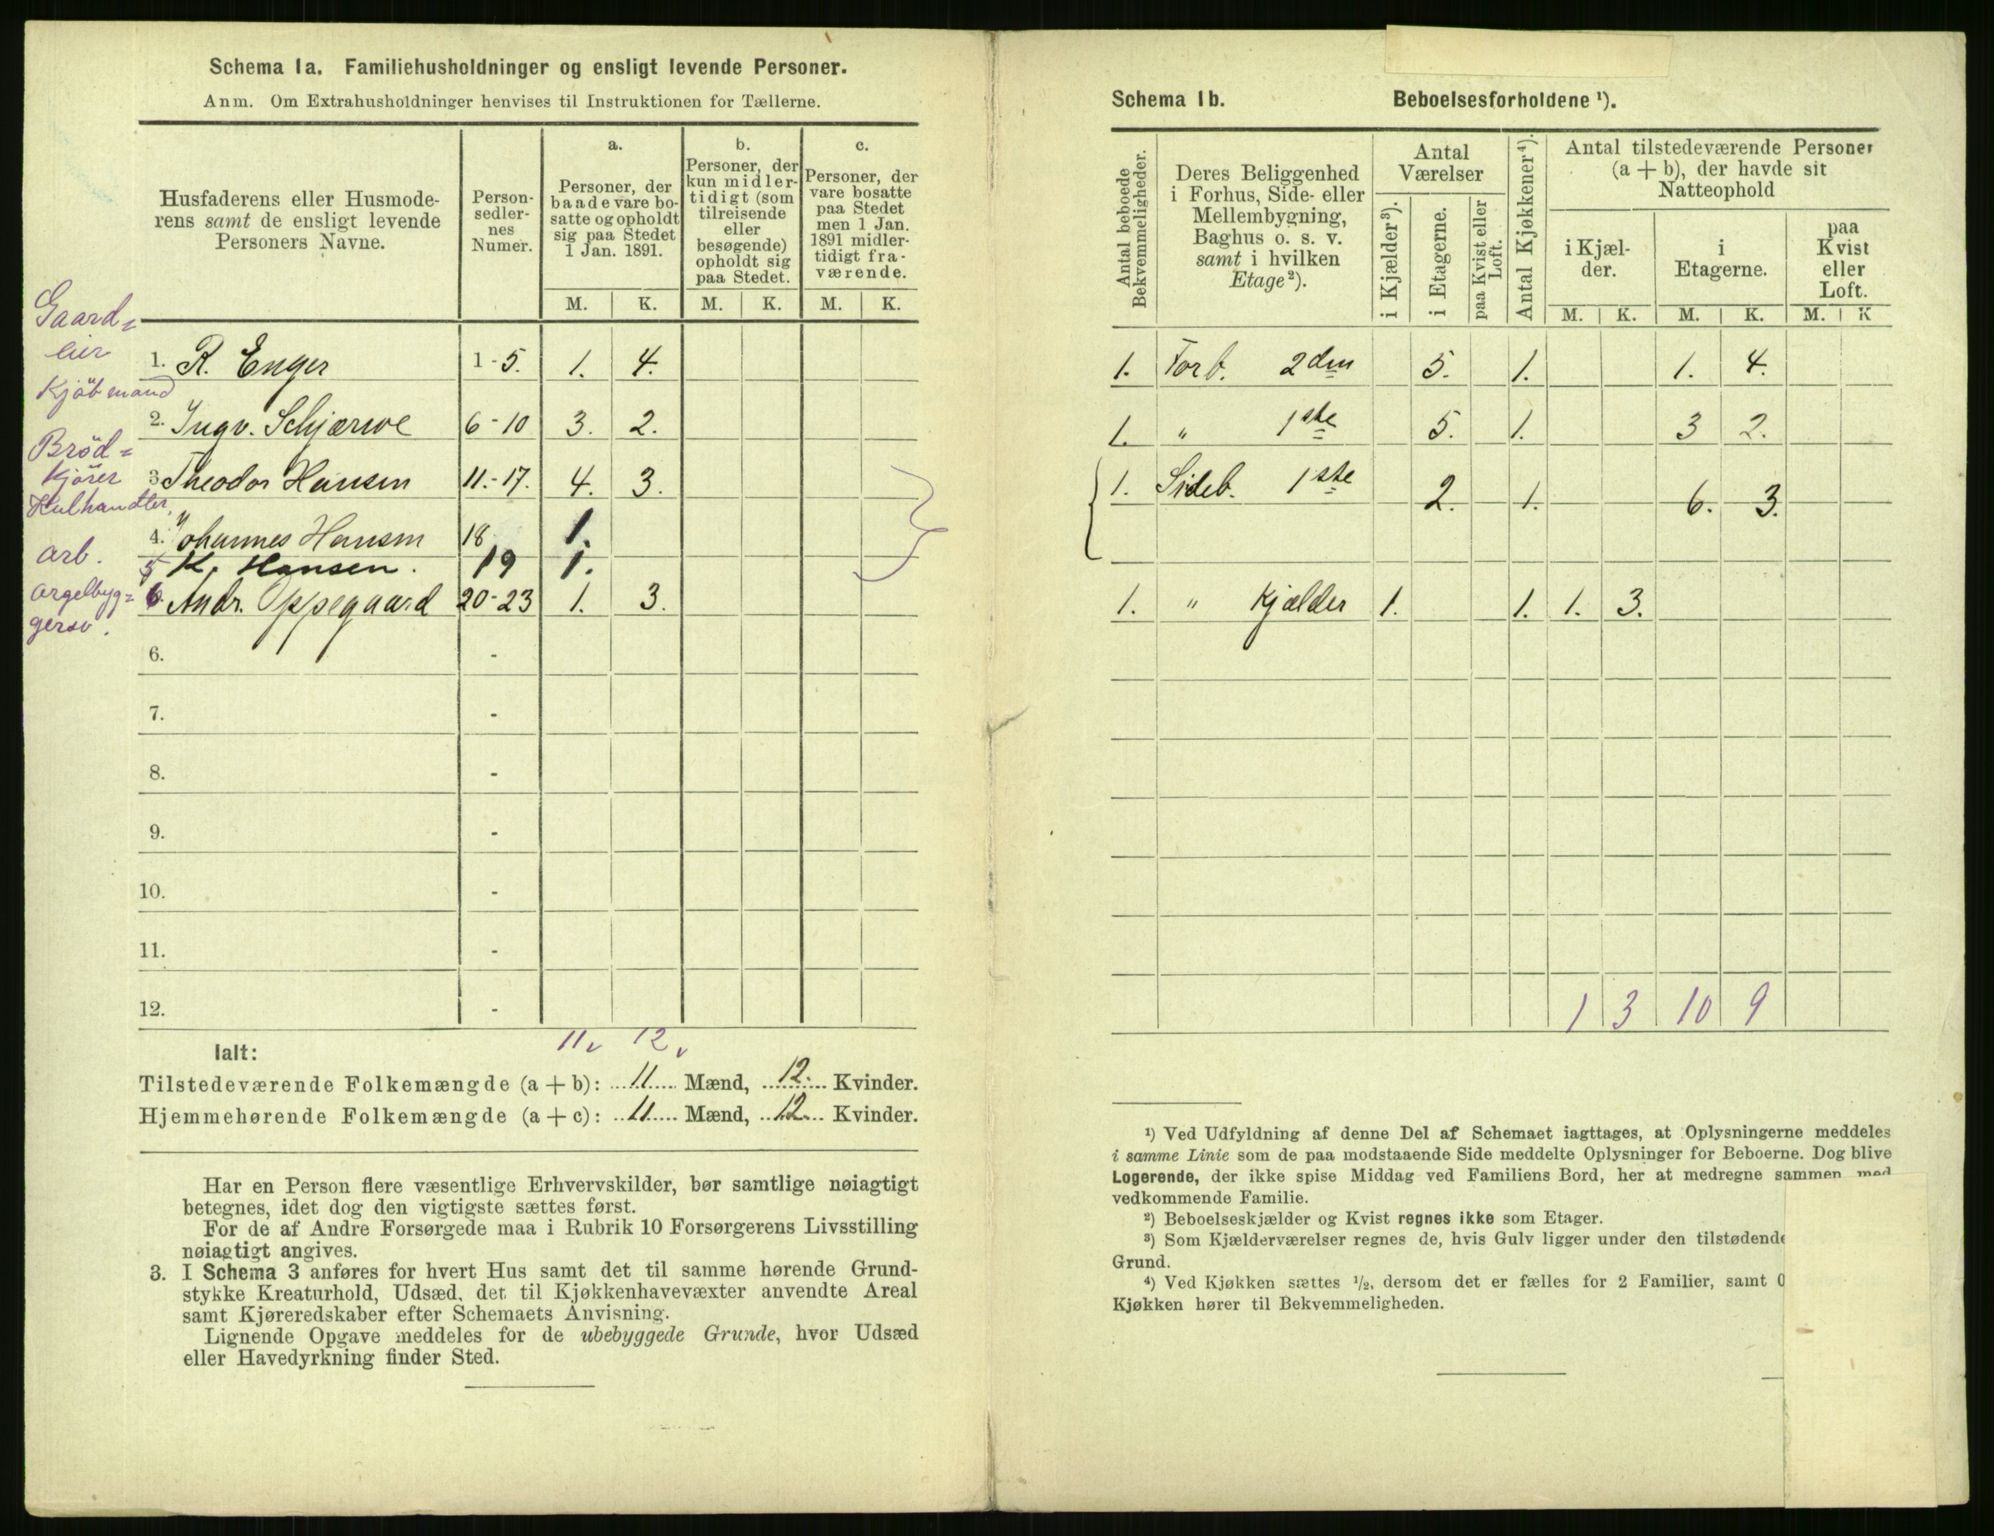 Schema 1a. Familiehusholdninger og ensligt levende Personer.
Anm. Om Extrahusholdninger henvises til Instruktionen for Tællerne.
Husfaderens eller Husmode-
rens samt de ensligt levende
Personers Navne.
Person-
sedler-
nes
Numer.
a.
Personer, der
baade vare bo-
satte og opholdt
sig paa Stedet
1 Jan. 1891.
b.
Personer, der
kun midler-
tidigt (som
tilreisende
eller
besøgende)
opholdt sig
paa Stedet.
c.
Personer, der
vare bosatte
paa Stedet
men 1 Jan.
1891 midler-
tidigt fra-
værende.
M. K. M. K. M. K.
Gaard-
eier
1. R. Enger 1-5. 1. 4.
Kjöbmand
2. Ingv. Schjærve 6-10 3. 2.
Bröd-
kjörer
3 Theodor Hansen 11.-17. 4. 3.
Kulhandler,
4. Johannes Hansen 18 1.
arb.
5 K. Hansen. 19 1.
orgelbyg-
gersv.
6. Andr. Oppegaard 20-23 1. 3.
6. -
7. -
8. -
9. -
10. -
11. -
12. -
11 12
Ialt:
Tilstedeværende Folkemængde (a + b): 11 Mænd, 12. Kvinder.
Hjemmehørende Folkemængde (a + c): 11 Mænd, 12. Kvinder.
Har en Person flere væsentlige Erhvervskilder, bør samtlige nøiagtigt
betegnes, idet dog den vigtigste sættes først.
For de af Andre Forsørgede maa i Rubrik 10 Forsørgerens Livsstilling
nøiagtigt angives.
3. I Schema 3 anføres for hvert Hus samt det til samme hørende Grund-
stykke Kreaturhold, Udsæd, det til Kjøkkenhavevæxter anvendte Areal
samt Kjøreredskaber efter Schemaets Anvisning.
Lignende Opgave meddeles for de ubebyggede Grunde, hvor Udsæd
eller Havedyrkning finder Sted.
Schema 1b. Beboelsesforholdene ¹).
Antal beboede
Bekvemmeligheder.
Deres Beliggenhed
i Forhus, Side- eller
Mellembygning,
Baghus o. s. v.
samt i hvilken
Etage ²).
Antal
Værelser
i Kjælder ³).
i Etagerne.
paa Kvist eller
Loft.
Antal Kjøkkener ⁴).
Antal tilstedeværende Personer
(a + b), der havde sit
Natteophold
i Kjæl-
der.
i
Etagerne.
paa
Kvist
eller
Loft.
M. K. M. K. M. K
1. Forb. 2den 5. 1. 1. 4.
1. " 1ste 5. 1. 3 2.
1. Sideb. 1ste 2. 1. 6. 3.
1. " Kjælder 1. 1. 1. 3.
1 3 10 9
¹) Ved Udfyldning af denne Del af Schemaet iagttages, at Oplysningerne meddeles
i samme Linie som de paa modstaaende Side meddelte Oplysninger for Beboerne. Dog blive
Logerende, der ikke spise Middag ved Familiens Bord, her at medregne sammen med
vedkommende Familie.
²) Beboelseskjælder og Kvist regnes ikke som Etager.
³) Som Kjælderværelser regnes de, hvis Gulv ligger under den tilstødende
Grund.
⁴) Ved Kjøkken sættes ¹/₂, dersom det er fælles for 2 Familier, samt 0
Kjøkken hører til Bekvemmeligheden.